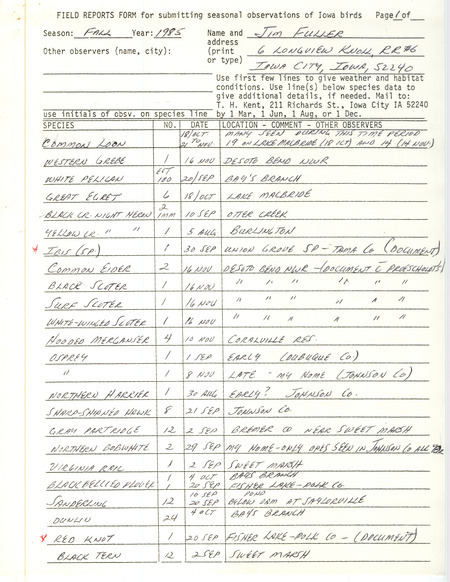 FIELD REPORTS FORM for submitting seasonal observations of Iowa birds Page 1 of
Season: FALL Year: 1985 Name and JIM FULLER
address
Other observers (name, city): (print 6 LONGVIEW KNOLL, RR#6
or type) IOWA CITY, IOWA, 52240
Use first few lines to give weather and habitat
conditions. Use line(s) below species data to
give additional details, if needed. Mail to:
T. H. Kent, 211 Richards St., Iowa City IA 52240
use initials of obsv. on species line by 1 Mar, 1 Jun, 1 Aug, or 1 Dec.
SPECIES NO. DATE LOCATION - COMMENT - OTHER OBSERVERS
COMMON LOON 18/OCT TO 21 NOV MANY SEEN DURING THIS TIME PERIOD
19 ON LAKE MACBRIDE (18 OCT) AND 14 (14 NOV)
WESTERN GREBE 1 16 NOV DESOTO BEND NWR
WHITE PELICAN EST 100 20/SEP BAY'S BRANCH
GREAT EGRET 6 18/OCT LAKE MACBRIDE
BLACK CR. NIGHT HERON 2 IMM 10 SEP OTTER CREEK
YELLOW CR. " " 1 5 AUG BURLINGTON
* IBIS (SP.) 1 30 SEP UNION GROVE SP - TAMA CO (DOCUMENT)
COMMON EIDER 2 16 NOV DESOTO BEND NWR - (DOCUMENT - PROESCHOLDT)
BLACK SCOTER 1 16 NOV " " " " "
SURF SCOTER 1 16/NOV " " " " "
WHITE-WINGED SCOTER 1 16 NOV " " " " "
HOODED MERGANSER 4 10 NOV CORALVILLE RES.
OSPREY 1 1 SEP EARLY (DUBUQUE CO)
" 1 8 NOV LATE - MY HOME (JOHNSON CO)
NORTHERN HARRIER 1 30 AUG EARLY? JOHNSON CO.
SHARP-SHINNED HAWK 8 21 SEP JOHNSON CO.
GRAY PARTRIDGE 12 2 SEP BREMER CO NEAR SWEET MARSH
NORTHERN BOBWHITE 2 29 SEP MY HOME - ONLY ONES SEEN IN JOHNSON CO ALL
VIRGINIA RAIL 1 2 SEP SWEET MARSH
BLACK BELLIED PLOVER 1 4 OCT BAYS BRANCH
1 20 SEP FISHER LAKE - POLK CO.
SANDERLING 12 10 SEP POND
20 SEP BELOW DAM AT SAYLORVILLE
DUNLIN 24 4 OCT BAYS BRANCH
* RED KNOT 1 20 SEP FISHER LAKE - POLK CO - (DOCUMENT)
BLACK TERN 12 2 SEP SWEET MARSH